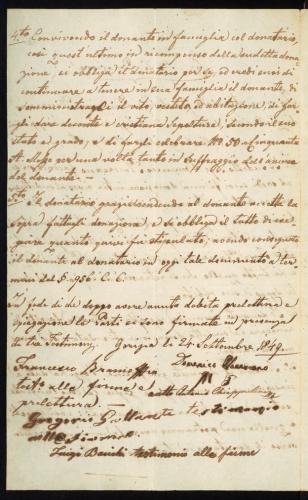 4.to Convivendo il donante in famiglia col donatario,
così quest'ultimo in ricompensa della suddetta dona
zione, si obbliga il donatario per se, ed eredi suoi di
continuare a tenere in sua famiglia il donante, di
somministragli il vito, vestito, ed abitazione, di far
gli dare decente e cristiana sepoltura, secondo il suo
stato e grado, e di fargli celebrare No 50 cinquanta
S. Messe per una volta tanto in suffraggio dell'anima
del donante. —
5.to Il donatario grazie rendendo al donante accetta la
sopra fattagli donazione, e si obbliga il tutto di ese
guire quanto quivi fu stipulato, avendo consegnato
il donante al donatario in oggi tale documento a ter
mini del §. 956. C. C.
In fede di che doppo avere avuta debita prelettura e
spiegazione le Parti si sono firmate in presenza
di tre Testimonj. Gorizia li 24 Settembre 1849.
Francesco
test.o alla firma e
prelettura —
Gregorio testimonio
alle firme
Luigi testimonio alle firme